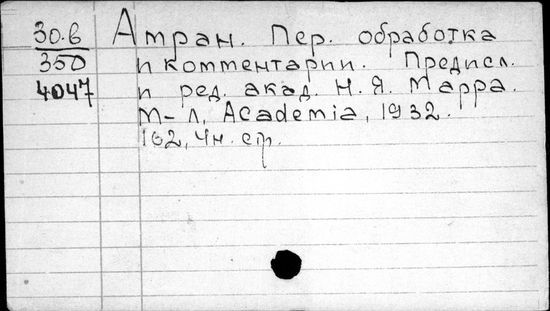 30.в Атран. Пер. обработка
350 и комментарии. Предисл.
4047 и ред. акад. Н.Я. Марра.
М-Л, Academia, 1932.
162, 4н. стр.